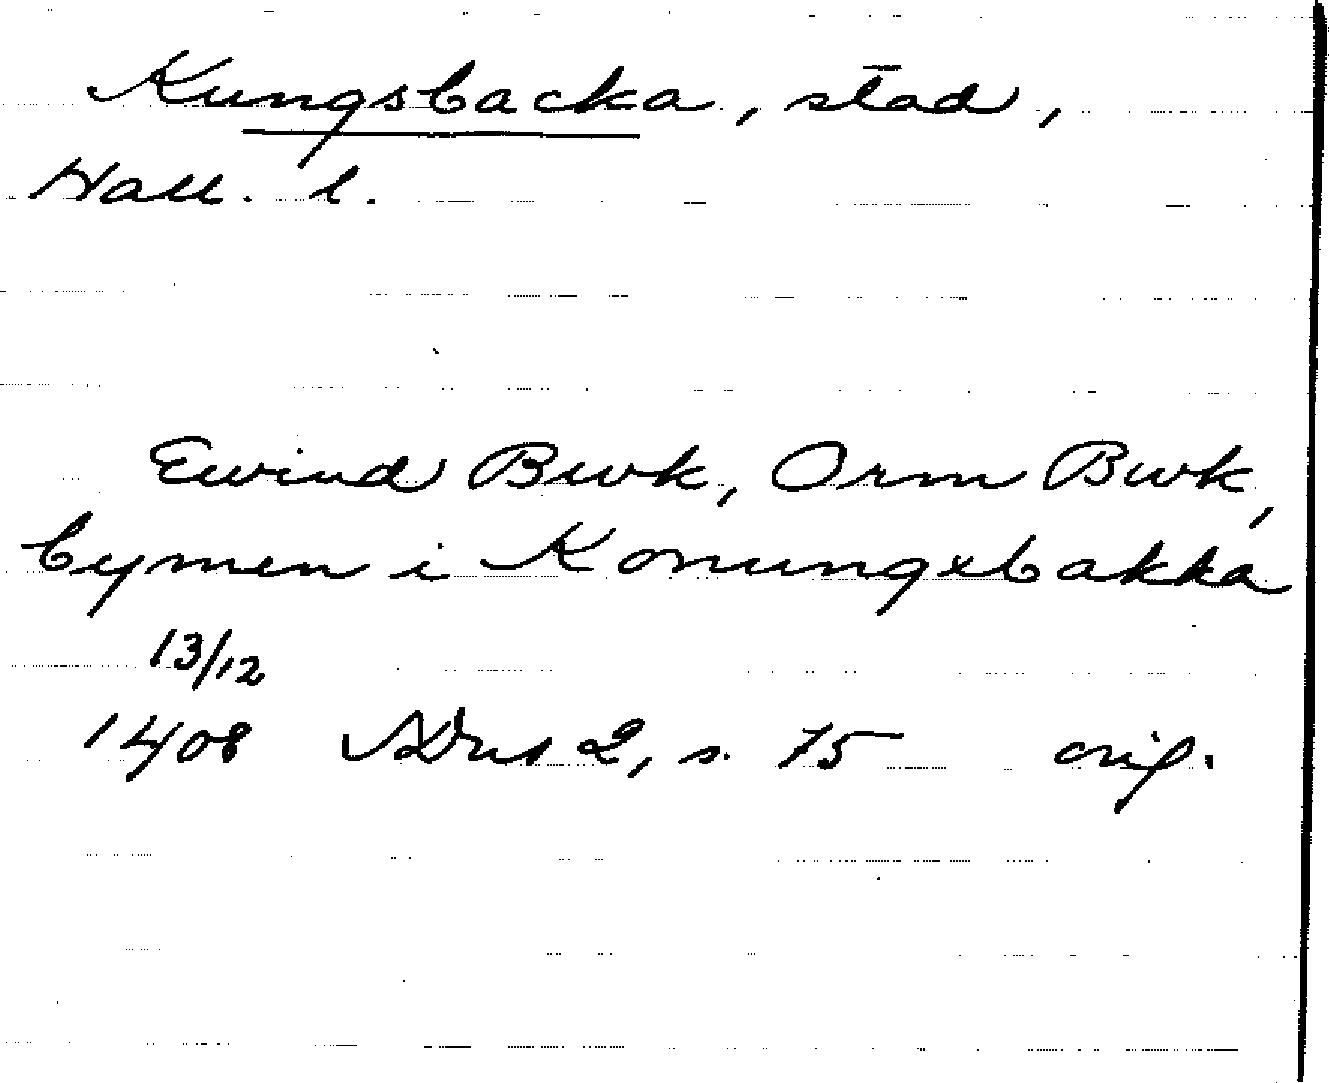 Kungsbacka, stad,
Hall. l.
Ewind Bwk, Orm Bwk,
bymen i Konungxbakka
13/12
1408 SDns 2, s. 75 orig.